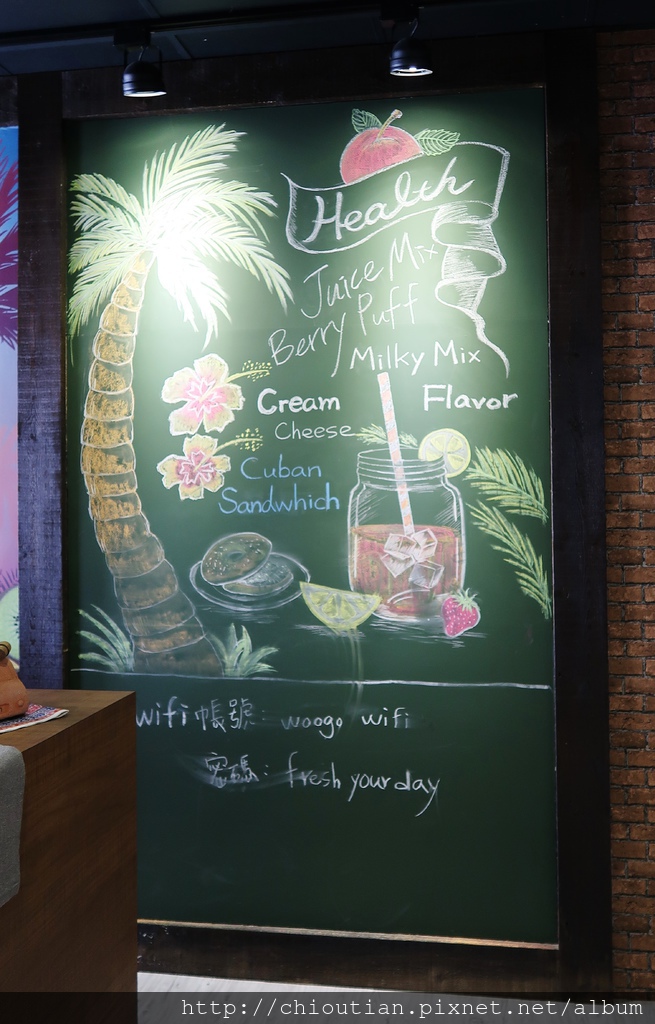 Health
Juice Mix
Berry Puff
Milky Mix
Cream Flavor
Cheese
Cuban
Sandwhich
wifi帳號: woogo wifi
密碼: fresh your day
http://chioutian.pixnet.net/album